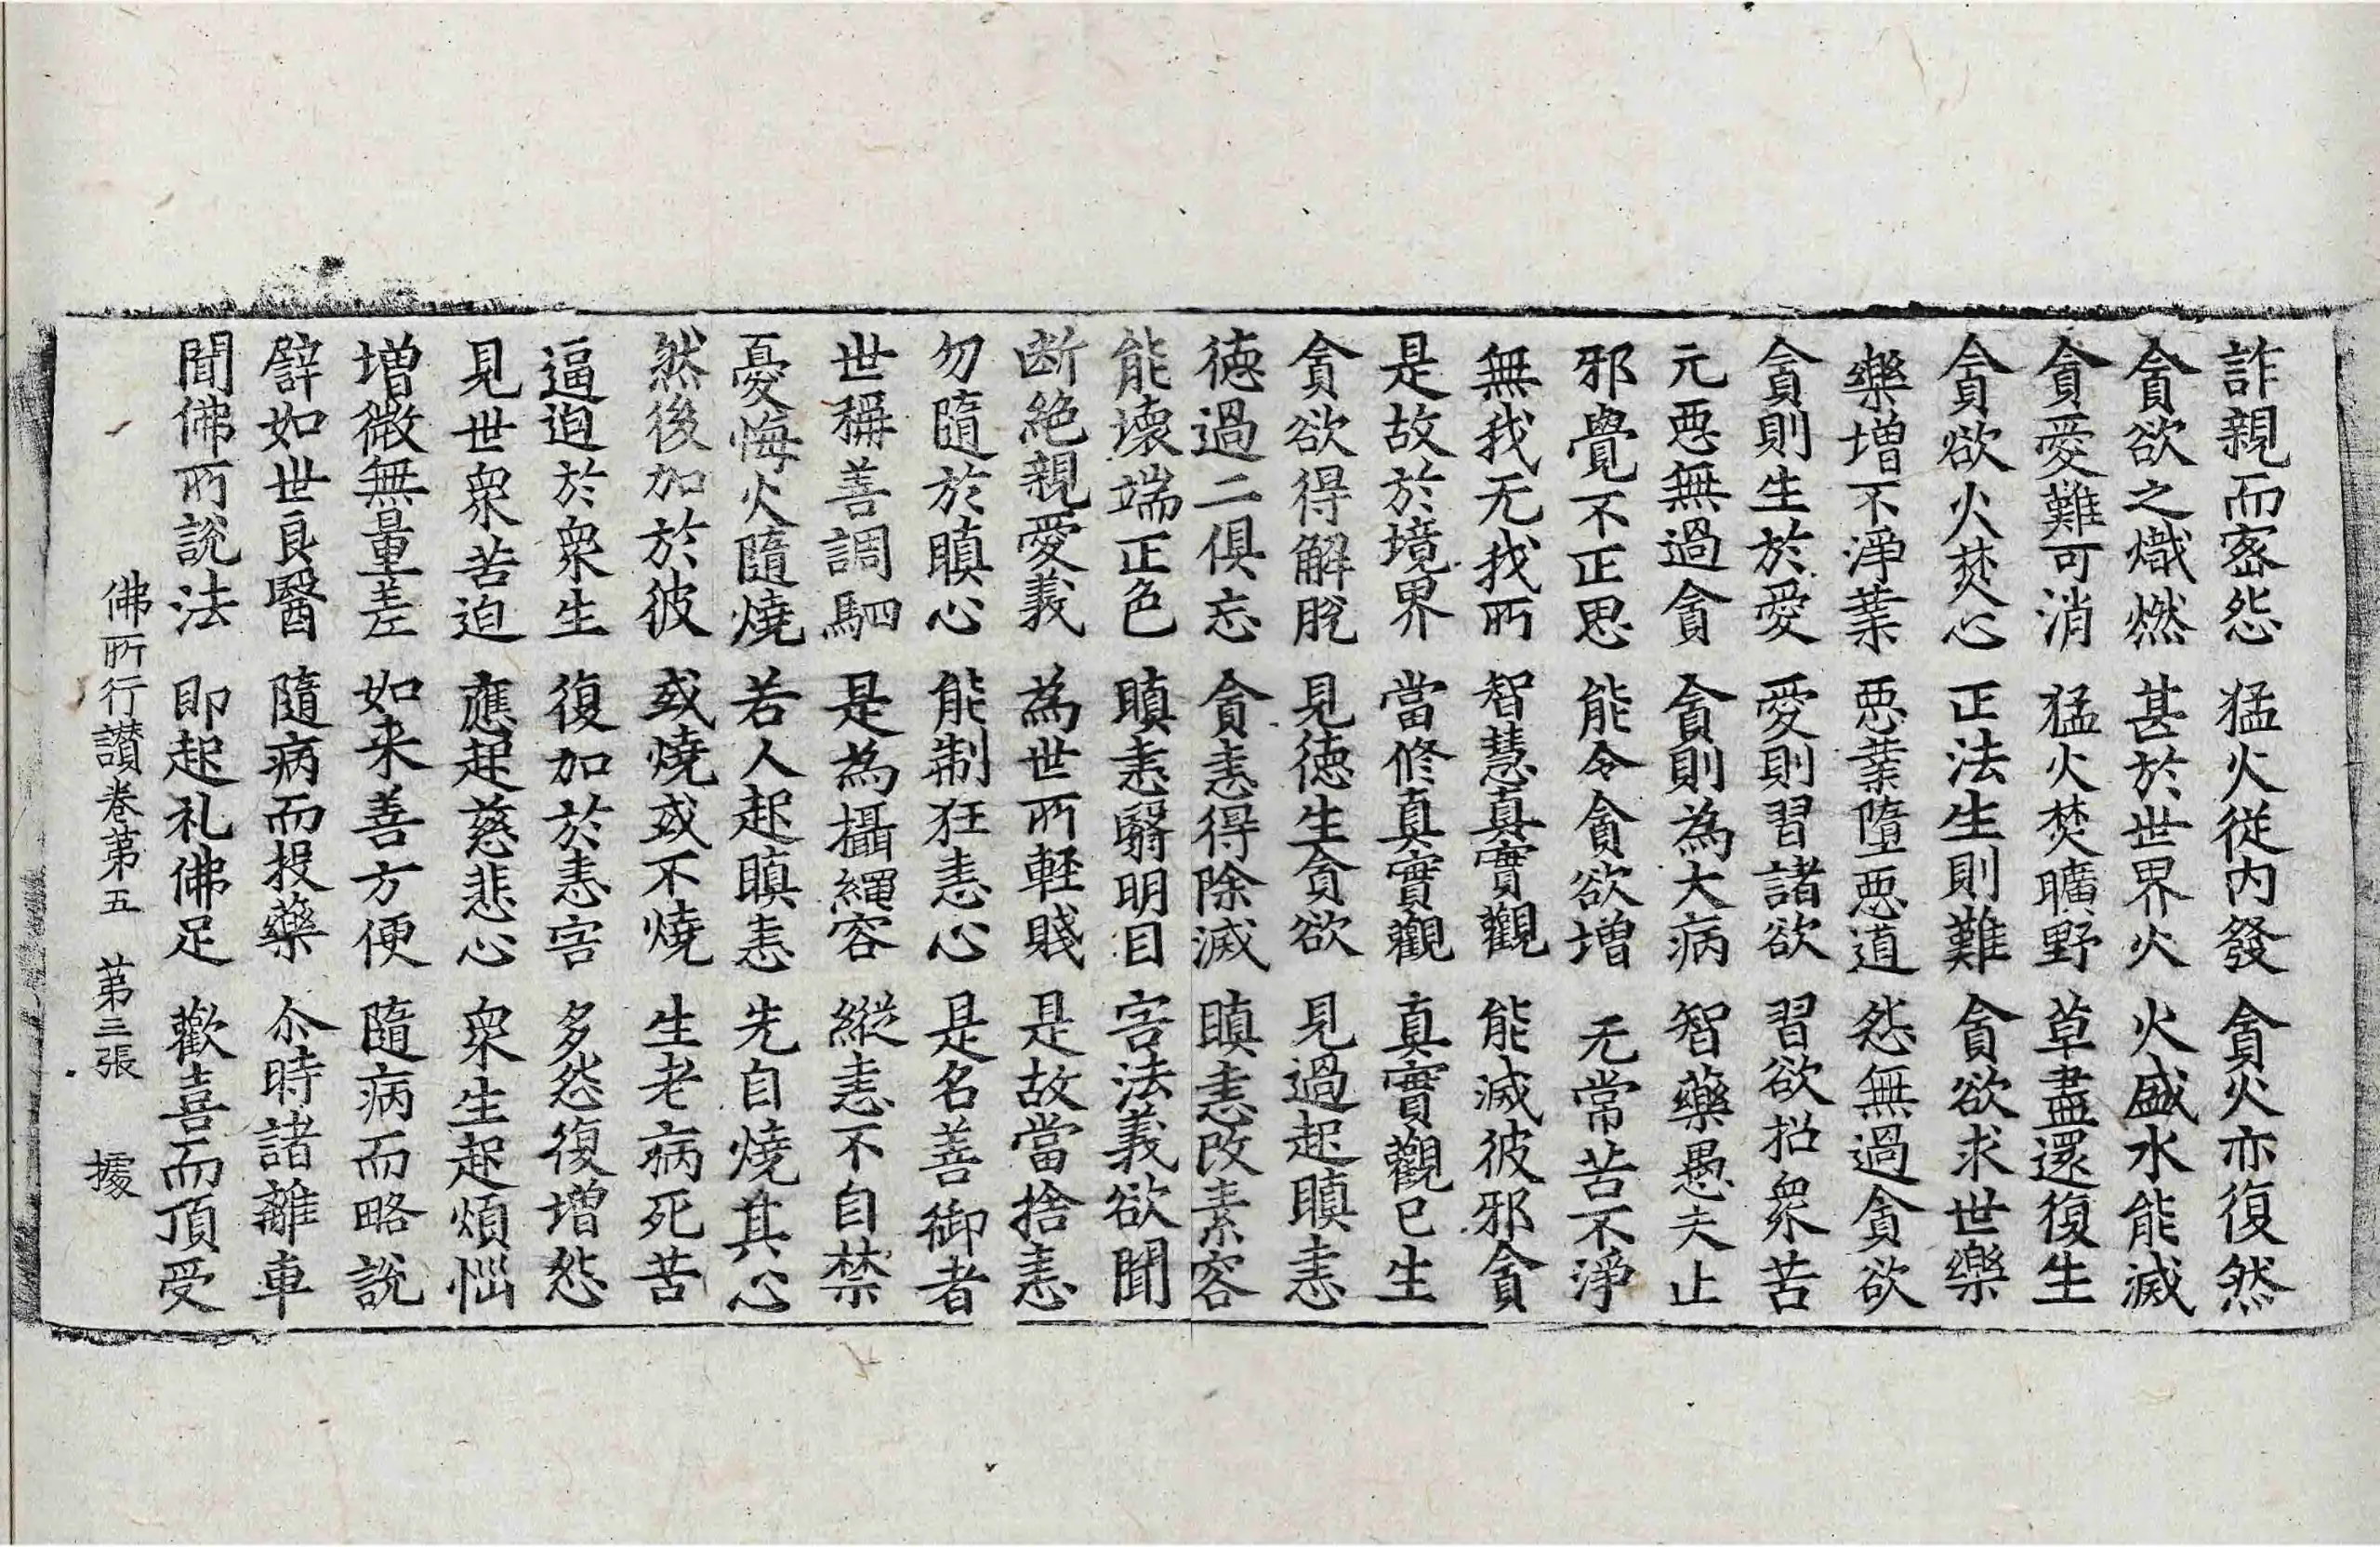 詐親而密怨 猛火從内發 貪火亦復然
貪欲之熾燃 甚於世界火 火盛水能滅
貪愛難可消 猛火焚曠野 草盡還復生
貪欲火焚心 正法生則難 貪欲求世樂
樂增不淨業 惡業墮惡道 怨無過貪欲
貪則生於愛 愛則習諸欲 習欲招衆苦
元惡無過貪 貪則為大病 智藥愚夫止
邪覺不正思 能令貪欲增 无常苦不淨
無我无我所 智慧真實觀 能滅彼邪貪
是故於境界 當修真實觀 真實觀已生
貪欲得解脫 見德生貪欲 見過起瞋恚
德過二俱忘 貪恚得除滅 瞋恚改素容
能壞端正色 瞋恚翳明目 害法義欲聞
断絕親愛義 為世所軽賤 是故當捨恚
勿隨於瞋心 能制狂恚心 是名善御者
世稱善調駟 是為攝繩容 縱恚不自禁
憂悔火隨燒 若人起瞋恚 先自燒其心
然後加於彼 或燒或不燒 生老病死苦
逼迫於衆生 復加於恚害 多怨復增怨
見世衆苦迫 應起慈悲心 衆生起煩惱
增微無量差 如来善方便 隨病而略說
譬如世良醫 隨病而投藥 尒時諸離車
聞佛所說法 即起礼佛足 歡喜而頂受
佛所行讃卷第五 第三張 援